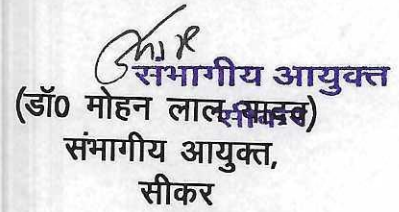 संभागीय आयुक्त
सीकर
(डॉ0 मोहन लाल यादव)
संभागीय आयुक्त,
सीकर